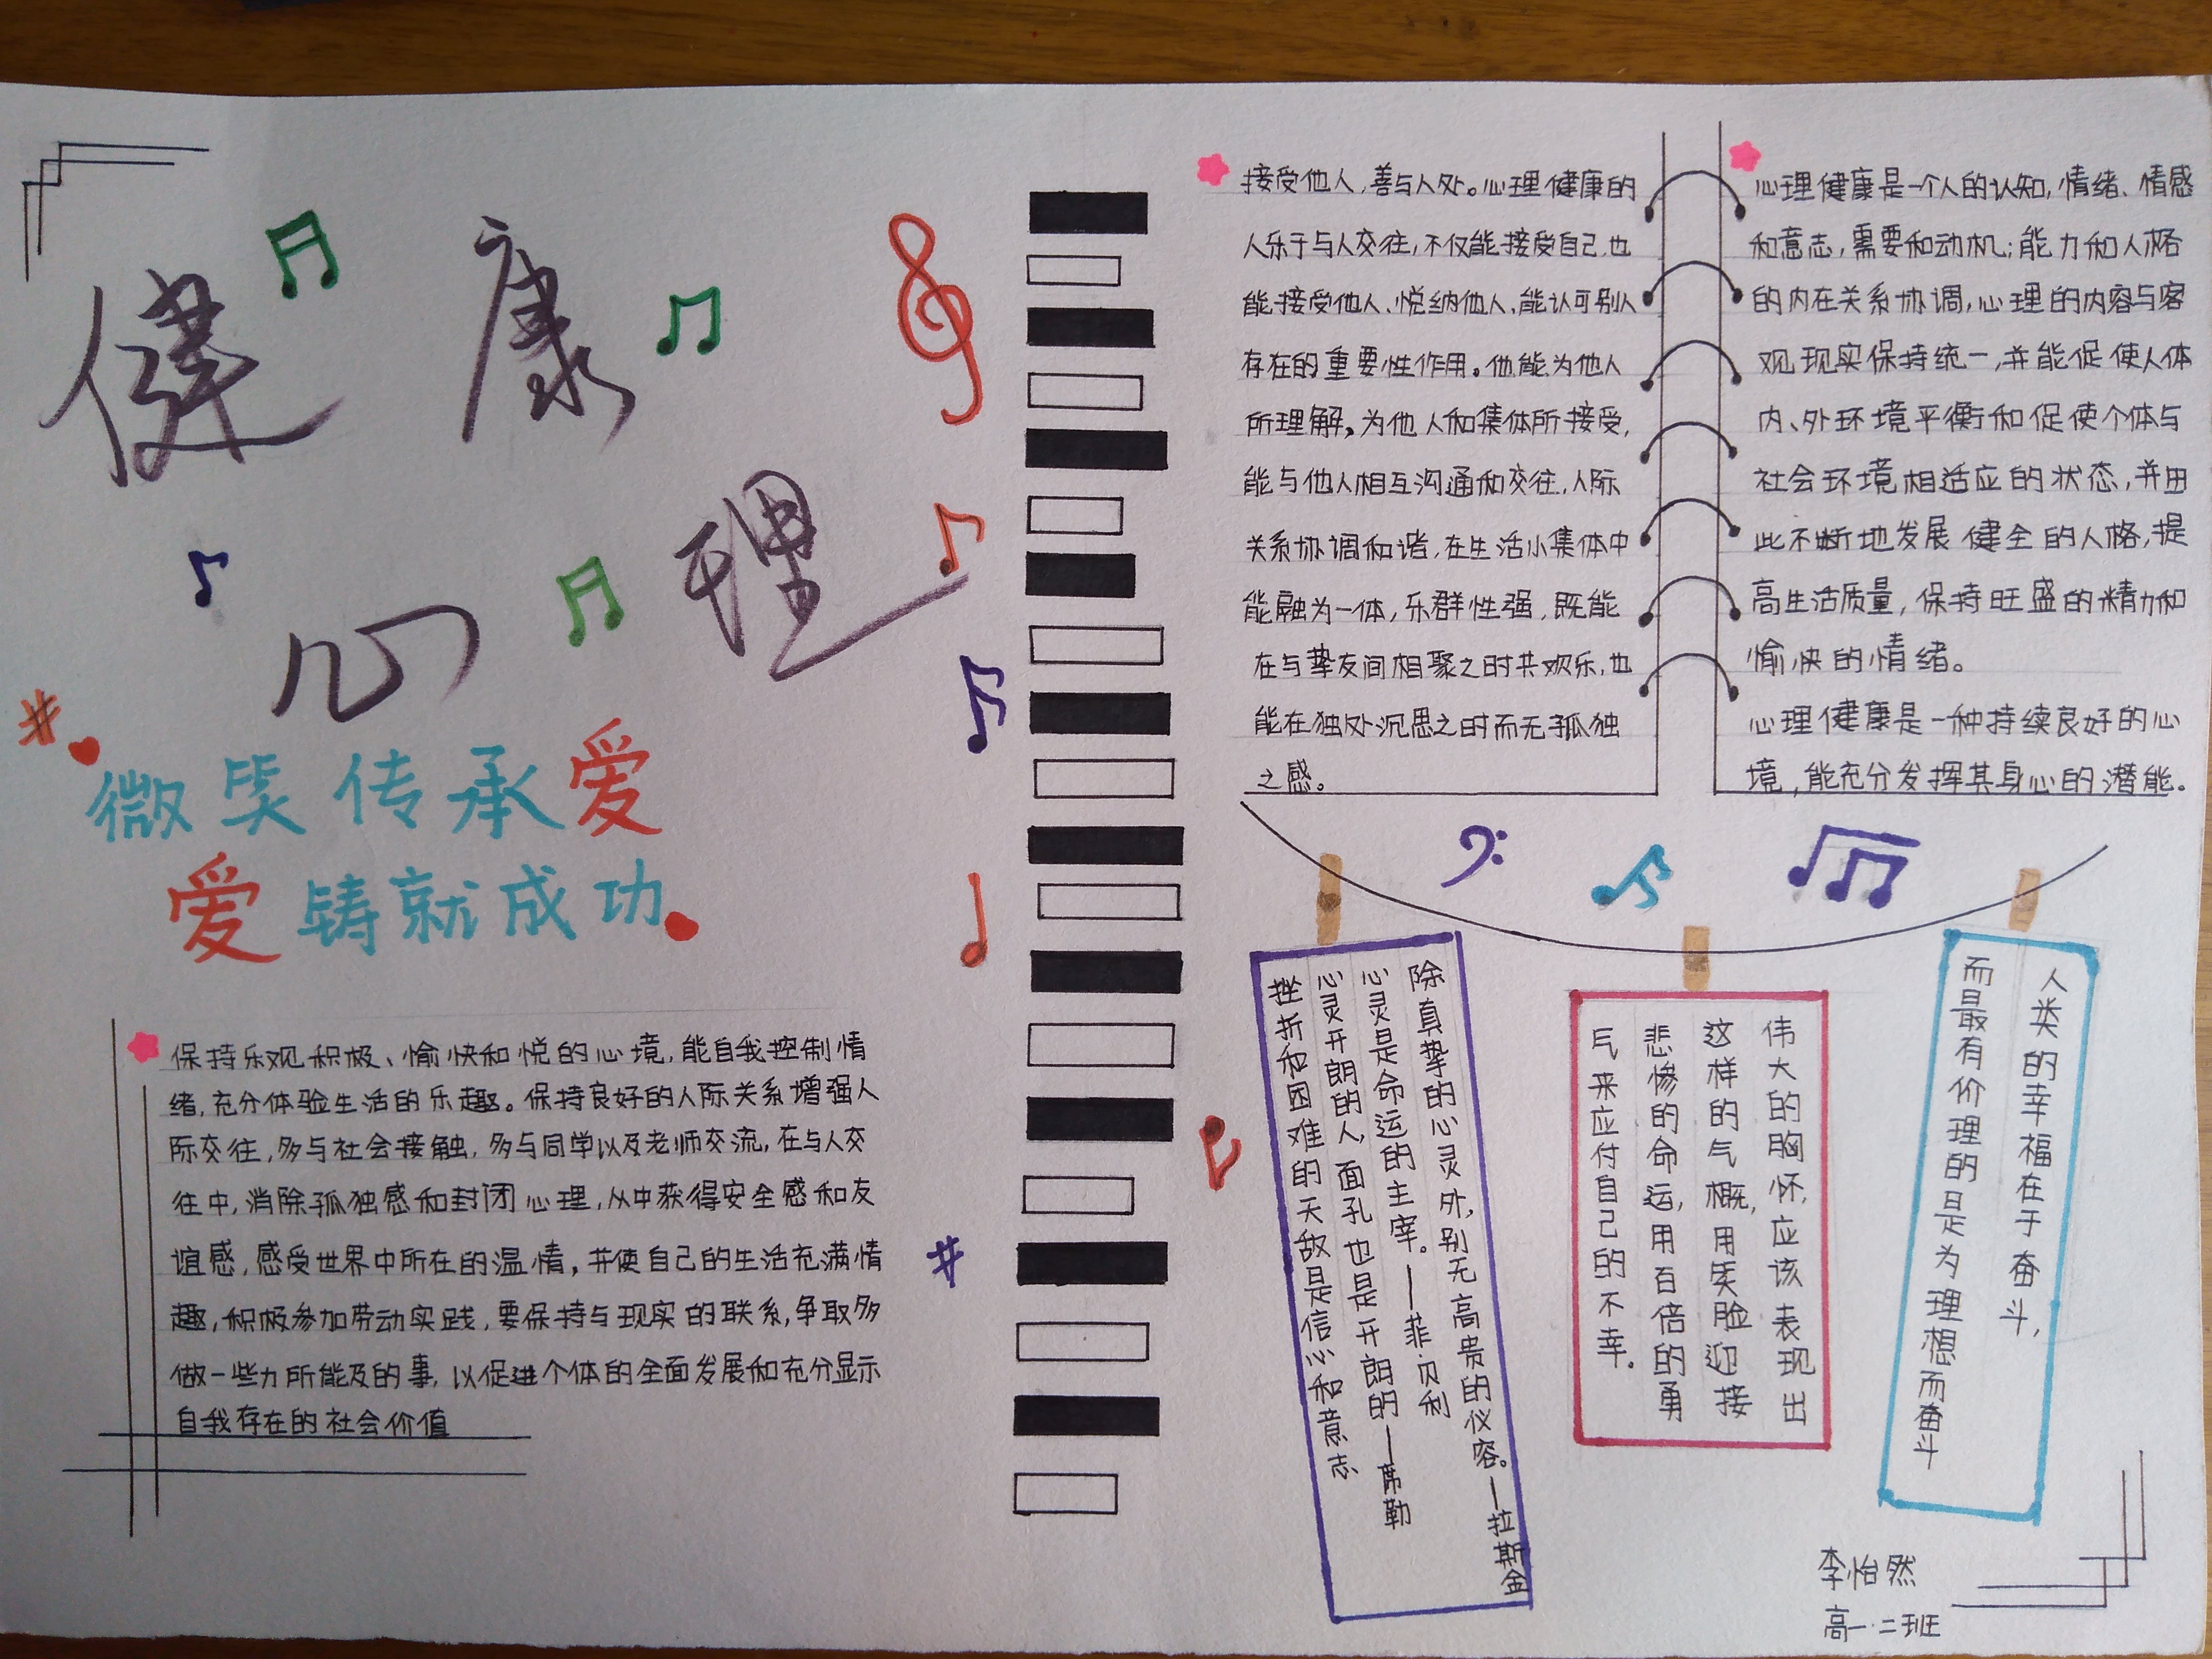 健康
心理
微笑传承爱
爱铸就成功
保持乐观积极、愉快和悦的心境,能自我控制情
绪,充分体验生活的乐趣。保持良好的人际关系增强人
际交往,多与社会接触,多与同学以及老师交流,在与人交
往中,消除孤独感和封闭心理,从中获得安全感和友
谊感,感受世界中所在的温情,并使自己的生活充满情
趣,积极参加劳动实践,要保持与现实的联系,争取多
做一些力所能及的事,以促进个体的全面发展和充分显示
自我存在的社会价值
接受他人,善与人处。心理健康的
人乐于与人交往,不仅能接受自己,也
能接受他人、悦纳他人,能认可别人
存在的重要性作用。他能为他人
所理解,为他人和集体所接受,
能与他人相互沟通和交往,人际
关系协调和谐,在生活小集体中
能融为一体,乐群性强,既能
在与挚友间相聚之时共欢乐,也
能在独处沉思之时而无孤独
之感。
心理健康是一个人的认知,情绪、情感
和意志,需要和动机;能力和人格
的内在关系协调,心理的内容与客
观现实保持统一,并能促使人体
内、外环境平衡和促使个体与
社会环境相适应的状态,并由
此不断地发展健全的人格,提
高生活质量,保持旺盛的精力和
愉快的情绪。
心理健康是一种持续良好的心
境,能充分发挥其身心的潜能。
除真挚的心灵外,别无高贵的仪容。—拉斯金
心灵是命运的主宰。——菲·贝利
心灵开朗的人,面孔也是开朗的—席勒
挫折和困难的天敌是信心和意志
伟大的胸怀,应该表现出
这样的气概,用笑脸迎接
悲惨的命运,用百倍的勇
气来应付自己的不幸。
人类的幸福在于奋斗,
而最有价理的是为理想而奋斗
李怡然
高一·二班